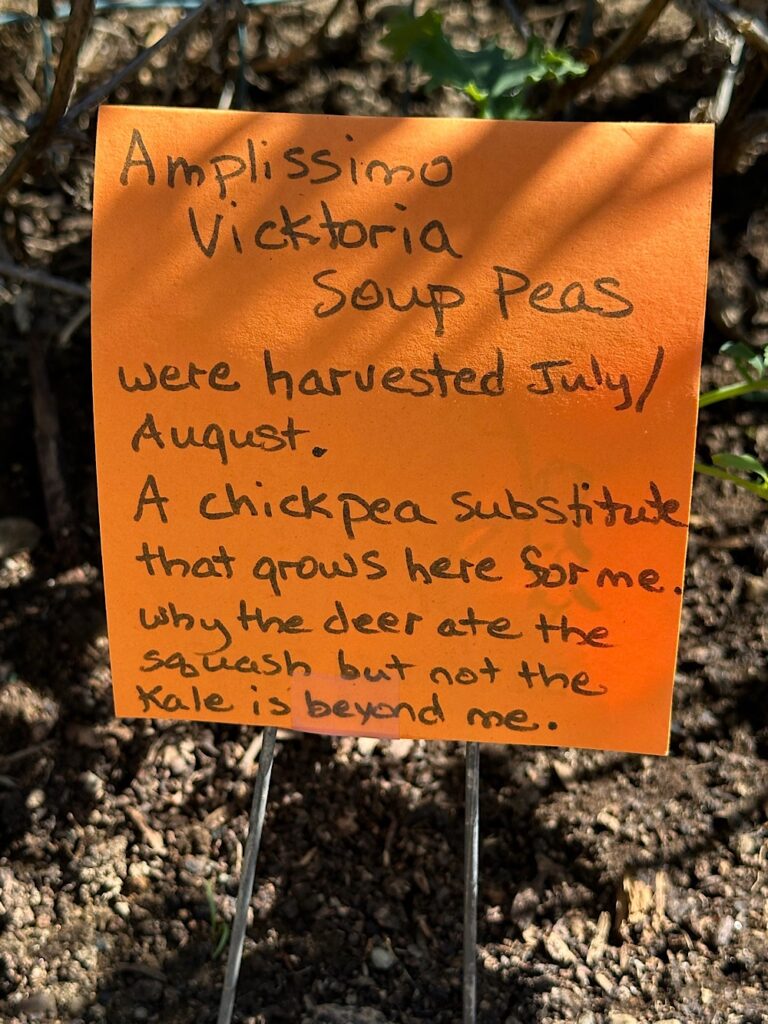 Amplissimo
Vicktoria
Soup Peas
were harvested July/
August.
A chickpea substitute
that grows here for me.
why the deer ate the
squash but not the
Kale is beyond me.